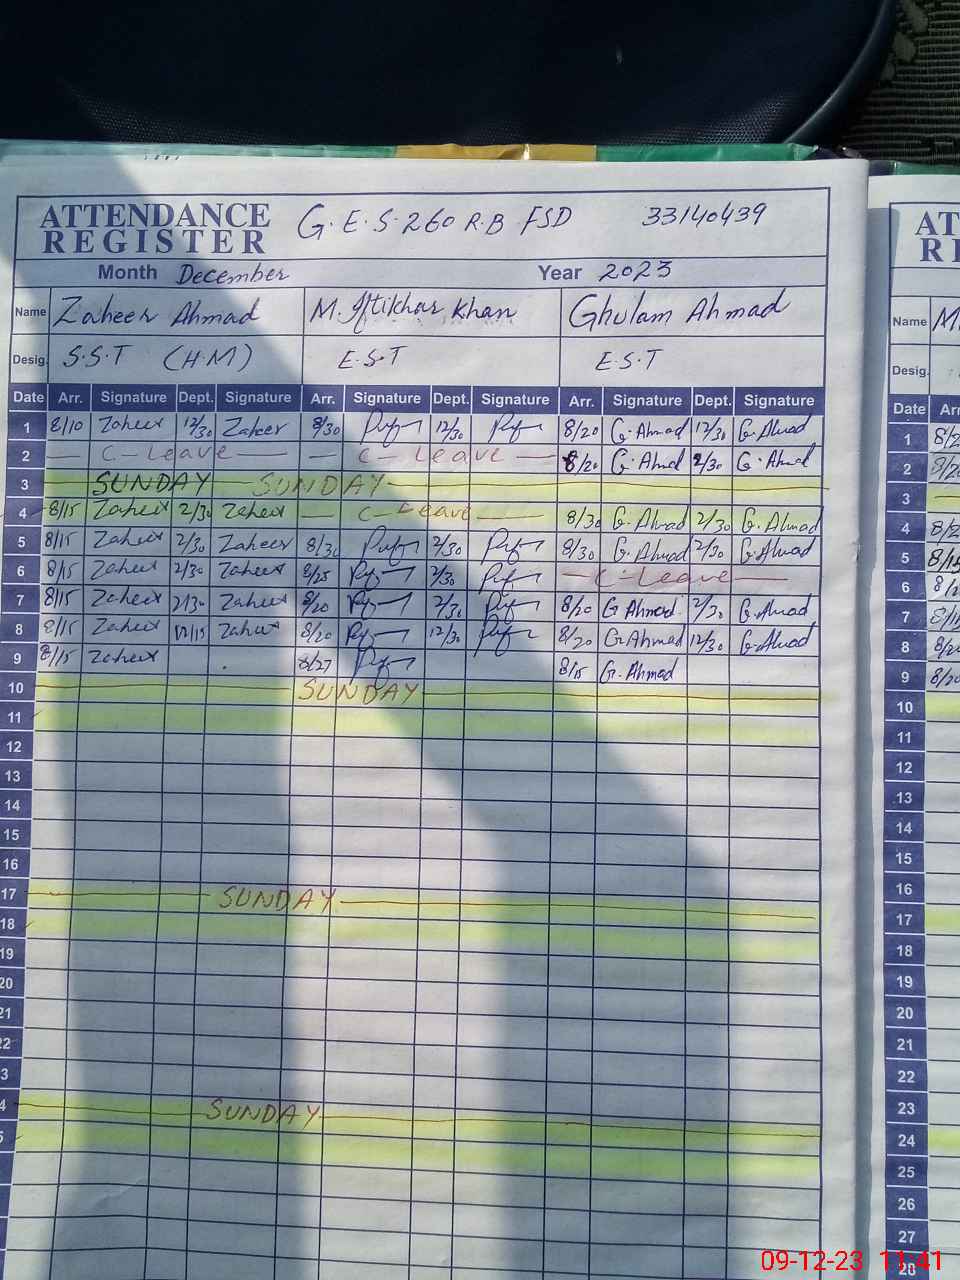 ATTENDANCE REGISTER G.E.S-260 R.B FSD 33140439
Month December Year 2023
Name Zaheer Ahmad M. Iftikhar Khan Ghulam Ahmad
Desig. S.S.T (H.M) E.S.T E.S.T
Date Arr. Signature Dept. Signature Arr. Signature Dept. Signature Arr. Signature Dept. Signature
1 8/10 Zaheer 12/30 Zaheer 8/30 12/30 8/20 G.Ahmad 12/30 G.Ahmad
2 C-Leave C-Leave 8/20 G.Ahmad 2/30 G.Ahmad
3 SUNDAY SUNDAY
4 8/15 Zaheer 2/30 Zaheer C-Leave 8/30 G.Ahmad 2/30 G.Ahmad
5 8/15 Zaheer 2/30 Zaheer 8/30 2/30 8/30 G.Ahmad 2/30 G.Ahmad
6 8/15 Zaheer 2/30 Zaheer 8/25 2/30 C-Leave
7 8/15 Zaheer 2/30 Zaheer 8/20 2/30 8/20 G Ahmad 2/30 G.Ahmad
8 8/15 Zaheer 12/15 Zaheer 8/20 12/30 8/20 G.Ahmad 12/30 G.Ahmad
9 8/15 Zaheer 8/27 8/15 G.Ahmad
10 SUNDAY
11
12
13
14
15
16
17 SUNDAY
18
19
20
21
22
3
4 SUNDAY
5
AT
RE
Name M.
Desig.
Date Arr
1
2
3
4 8/2
5 8/15
6
7
8 8/20
9 8/20
10
11
12
13
14
15
16
17
18
19
20
21
22
23
24
25
26
27
28
09-12-23 11:41